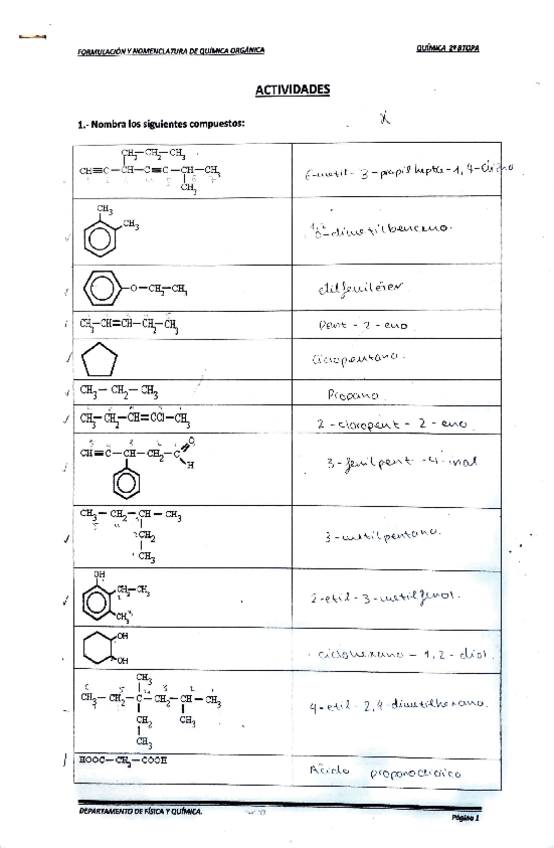 FORMULACIÓN Y NOMENCLATURA DE QUÍMICA ORGÁNICA QUÍMICA 2º BTOPA
ACTIVIDADES
1.- Nombra los siguientes compuestos:
CH₂—CH₂—CH₃
CH≡C—CH—C≡C—CH—CH₃
CH₃
6-metil-3-propilhepta-1,4-diino
CH₃
CH₃
o-dimetilbenceno.
O—CH₂—CH₃
etilfeniléter
CH₃—CH=CH—CH₂—CH₃
Pent-2-eno
Ciclopentano.
CH₃—CH₂—CH₃
Propano
CH₃—CH₂—CH=CCl—CH₃
2-cloropent-2-eno
CH≡C—CH—CH₂—C
O
H
3-fenilpent-4-inal
CH₃—CH₂—CH—CH₃
CH₂
CH₃
3-metilpentano.
OH
CH₂—CH₃
CH₃
2-etil-3-metilfenol.
OH
OH
ciclohexano-1,2-diol
CH₃
CH₃—CH₂—C—CH₂—CH—CH₃
CH₂ CH₃
CH₃
4-etil-2,4-dimetilhexano.
HOOC—CH₂—COOH
Ácido propanodioico
DEPARTAMENTO DE FÍSICA Y QUÍMICA. Página 1